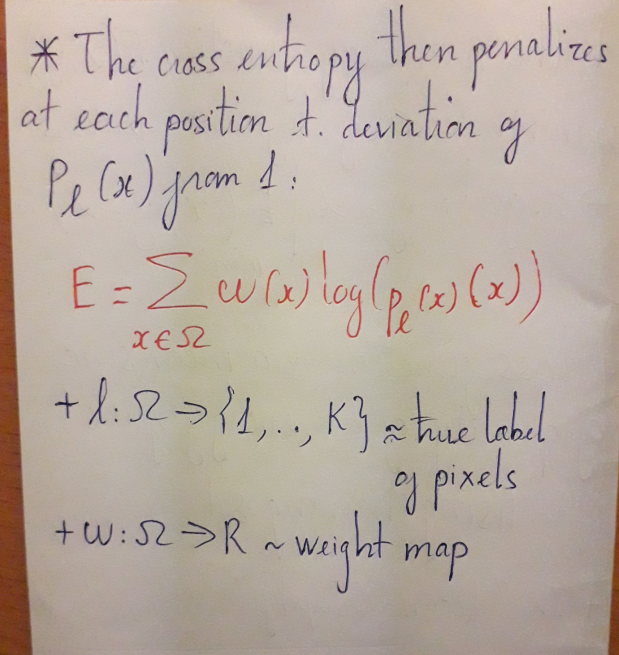 * The cross entropy then penalizes
at each position t. deviation of
Pₗ(x) from 1:
E = ∑ w(x) log(pₗ(x)(x))
x ∈ Ω
+ l: Ω ⇒ {1,.., K} ≈ true label
of pixels
+ w: Ω ⇒ R ~ weight map